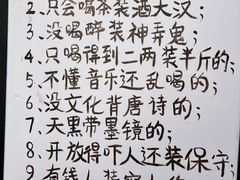 2.只会喝茶装酒大汉;
3.没喝醉装神弄鬼;
4.只喝得到二两装半斤的;
5.不懂音乐还乱喝的;
6.没文化背唐诗的;
7.天黑带墨镜的;
8.开放得吓人还装保守;
9.有钱人装穷人